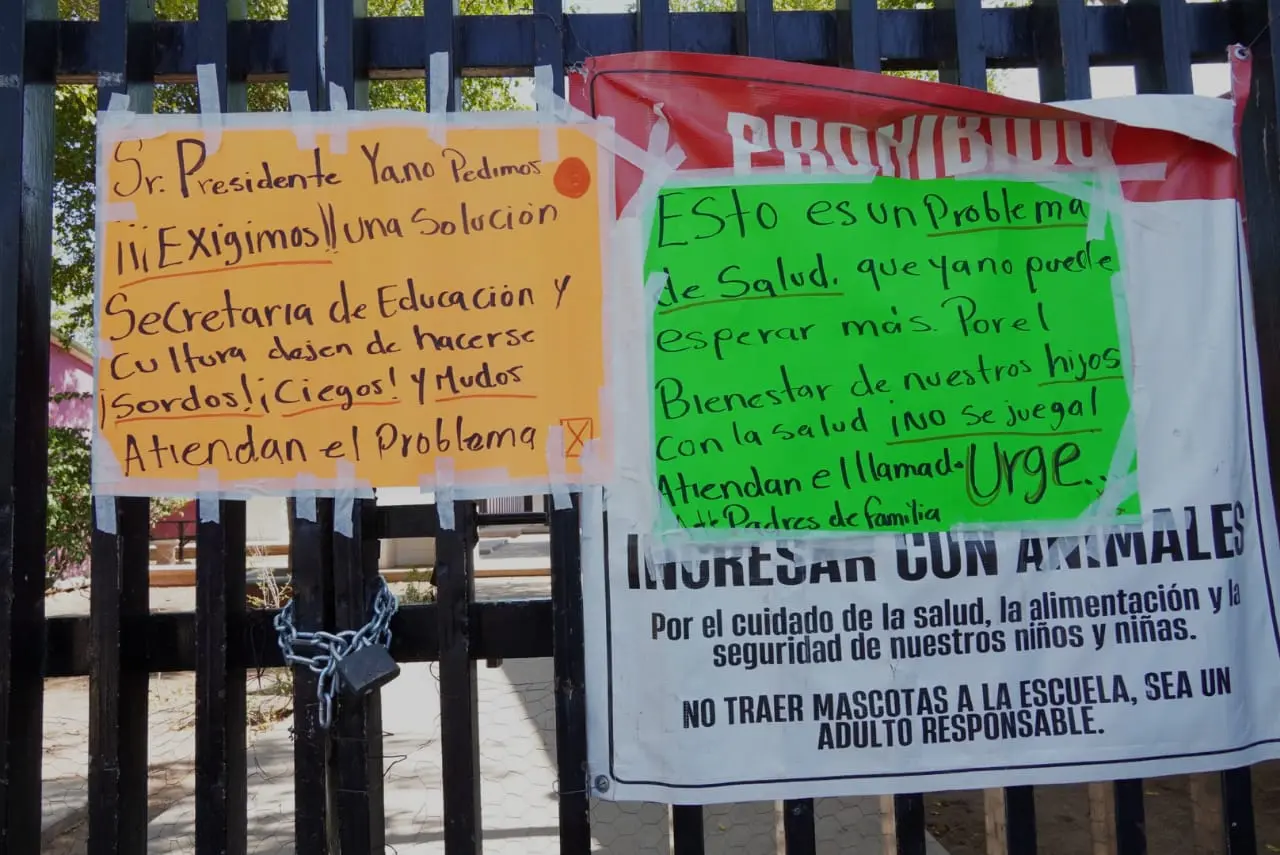 Sr. Presidente Ya no Pedimos
¡¡¡Exigimos!! una Solución
Secretaría de Educación y
Cultura dejen de hacerse
¡Sordos! ¡Ciegos! y Mudos
Atiendan el Problema
X
PROHIBIDO
Esto es un Problema
de Salud. que ya no puede
esperar más. Por el
Bienestar de nuestros hijos
con la salud ¡NO se juega!
Atiendan el llamado Urge..
Att Padres de familia
INGRESAR CON ANIMALES
Por el cuidado de la salud, la alimentación y la
seguridad de nuestros niños y niñas.
NO TRAER MASCOTAS A LA ESCUELA, SEA UN
ADULTO RESPONSABLE.